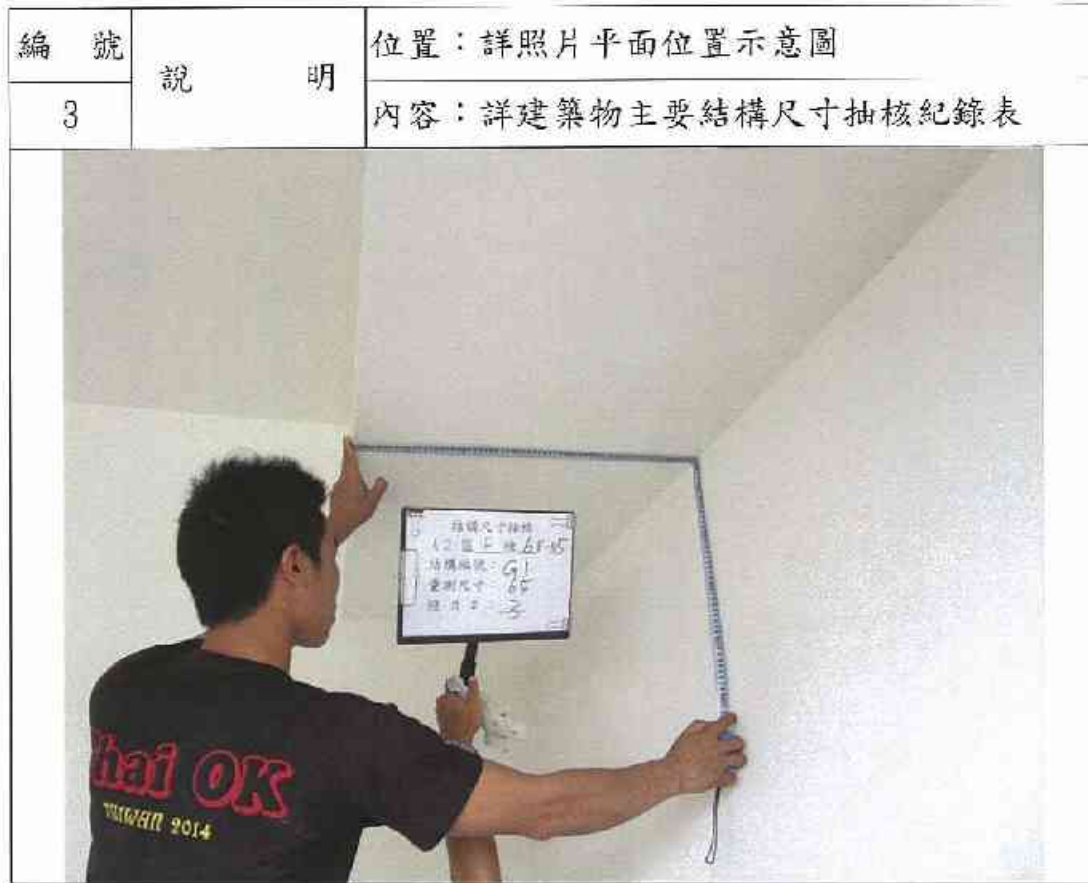 編 號
3
說 明
位置：詳照片平面位置示意圖
內容：詳建築物主要結構尺寸抽核紀錄表
結構尺寸抽核
結構編號：G1
量測尺寸 65
照片 3
Thai OK
TAIWAN 2014